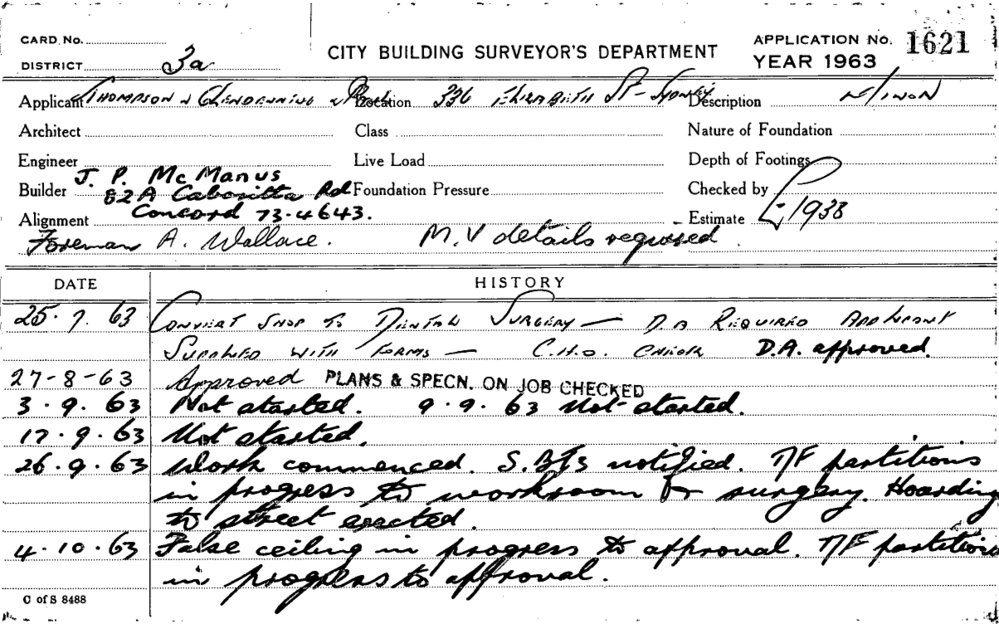 CARD No.
DISTRICT 3a
CITY BUILDING SURVEYOR'S DEPARTMENT
APPLICATION No. 1621
YEAR 1963
Applicant THOMPSON Location 336 ELIZABETH ST - Description
Architect Class Nature of Foundation
Engineer Live Load Depth of Footings
Builder J. P. McManus
82A Cabaritta Rd Foundation Pressure Checked by
Alignment Concord 73-4643. Estimate £1938
Foreman A. Wallace. M.V details required
DATE HISTORY
25.7.63 CONVERT SHOP TO DENTAL SURGERY — D.A REQUIRED APPLICANT
SUPPLIED WITH FORMS — C.H.O. CHECK D.A. approved.
27-8-63 Approved PLANS & SPECN. ON JOB CHECKED
3.9.63 Not started. 9.9.63 Not started.
17.9.63 Not started.
26.9.63 Work commenced. notified. T/F partitions
in progress to workroom & surgery. Hoarding
to street erected.
4.10.63 False ceiling in progress to approval. T/F partitions
in progress to approval.
C of S 8488